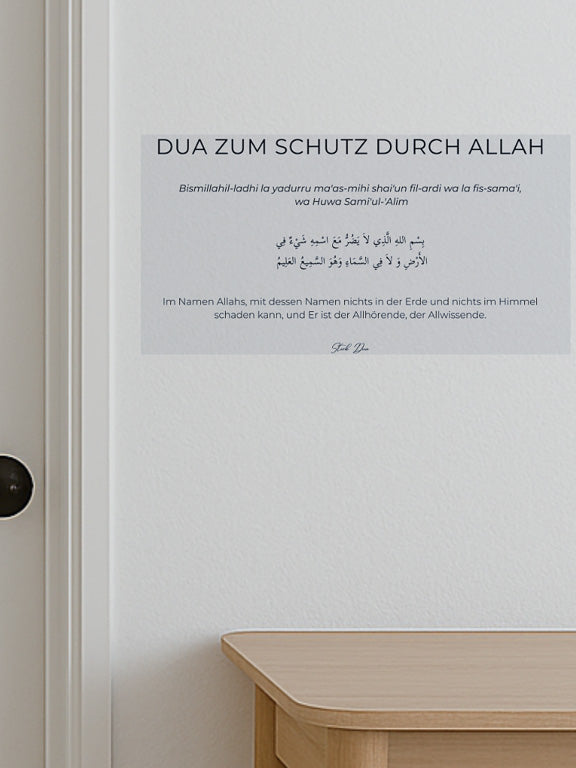 DUA ZUM SCHUTZ DURCH ALLAH
Bismillahil-ladhi la yadurru ma'as-mihi shai'un fil-ardi wa la fis-sama'i,
wa Huwa Sami'ul-'Alim
بِسْمِ اللهِ الَّذِي لاَ يَضُرُّ مَعَ اسْمِهِ شَيْءٌ فِي
الأَرْضِ وَ لاَ فِي السَّمَاءِ وَهُوَ السَّمِيعُ العَلِيمُ
Im Namen Allahs, mit dessen Namen nichts in der Erde und nichts im Himmel
schaden kann, und Er ist der Allhörende, der Allwissende.